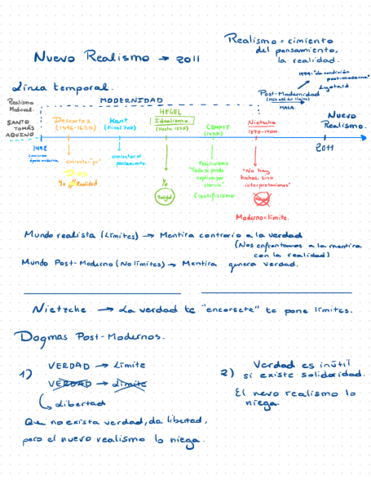 Nuevo Realismo → 2011
Realismo = cimiento
del pensamiento,
la realidad.
Línea temporal.
1979: "La condición
post-moderna"
Lyotard
Realismo
Medieval
SANTO
TOMÁS
AQUINO
MODERNIDAD
Post-Modernidad
MALA
Nuevo
Realismo.
Descartes
(1596-1650)
Kant
HEGEL
Idealismo
COMTE
Nietzche
1492
2011
conciencia "yo"
Yo → Realidad
Positivismo
"Todo se puede
explicar por
ciencia"
Cientifismo
"No hay
hechos, sino
interpretaciones"
Moderno = límite.
Mundo realista (Límites) → Mentira contrario a la verdad
(Nos enfrentamos a la mentira
con la realidad)
Mundo Post-Moderno (No límites) → Mentira genera verdad.
Nietzche → La verdad te "encorseta" te pone límites.
Dogmas Post-Modernos.
1) VERDAD → Límite
VERDAD → Límite
Libertad
Que no exista verdad, da libertad,
pero el nuevo realismo lo niega.
2) Verdad es inútil
si existe solidaridad.
El nevo realismo lo
niega.